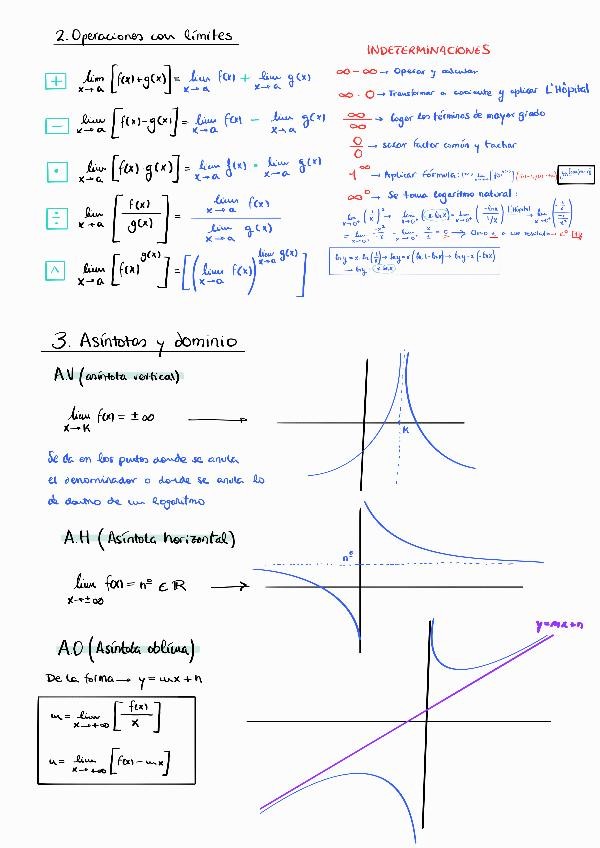 2. Operaciones con límites
+ lim x→a [f(x)+g(x)] = lim x→a f(x) + lim x→a g(x)
− lim x→a [f(x)-g(x)] = lim x→a f(x) − lim x→a g(x)
• lim x→a [f(x)·g(x)] = lim x→a f(x) • lim x→a g(x)
÷ lim x→a [f(x)/g(x)] = lim x→a f(x) / lim x→a g(x)
^ lim x→a [f(x)^g(x)] = [(lim x→a f(x))^lim x→a g(x)]
INDETERMINACIONES
∞-∞ → Operar y calcular
∞·0 → Transformar a cociente y aplicar L'Hôpital
∞/∞ → coger los términos de mayor grado
0/0 → sacar factor común y tachar
1^∞ → Aplicar fórmula:
∞^0 → Se toma logaritmo natural:
3. Asíntotas y dominio
A.V (asíntota vertical)
lim x→K f(x) = ±∞ →
Se da en los puntos donde se anula
el denominador o donde se anula lo
de dentro de un logaritmo
K
A.H (Asíntota horizontal)
lim x→±∞ f(x) = nº ∈ ℝ →
nº
A.O (Asíntota oblicua)
De la forma → y = mx + n
m = lim x→+∞ [f(x)/x]
n = lim x→+∞ [f(x) - mx]
y=mx+n